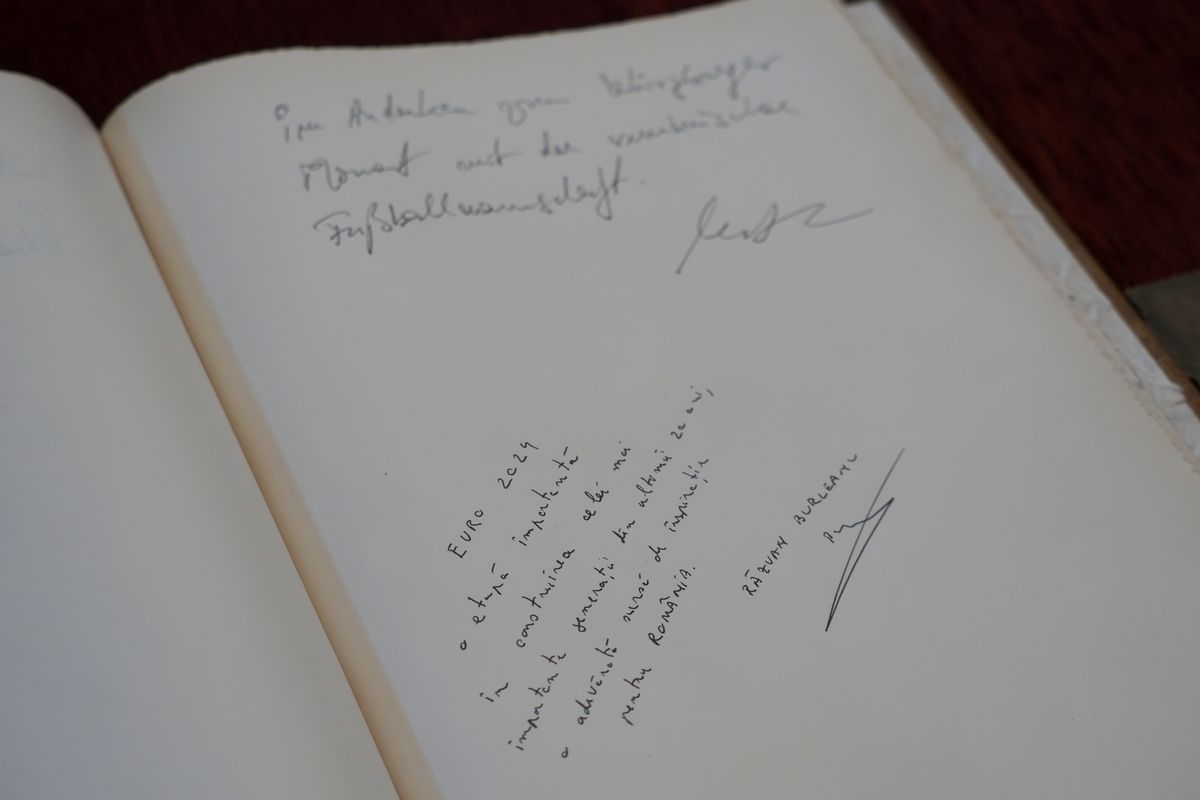 im Andenken zum Würzburger
Moment mit der rumänischen
Fußballmannschaft.
EURO 2024
o etapă importantă
în construirea celei mai
importante generații din ultimii 20 ani,
o adevărată sursă de inspirație
pentru ROMÂNIA.
RĂZVAN BURLEANU